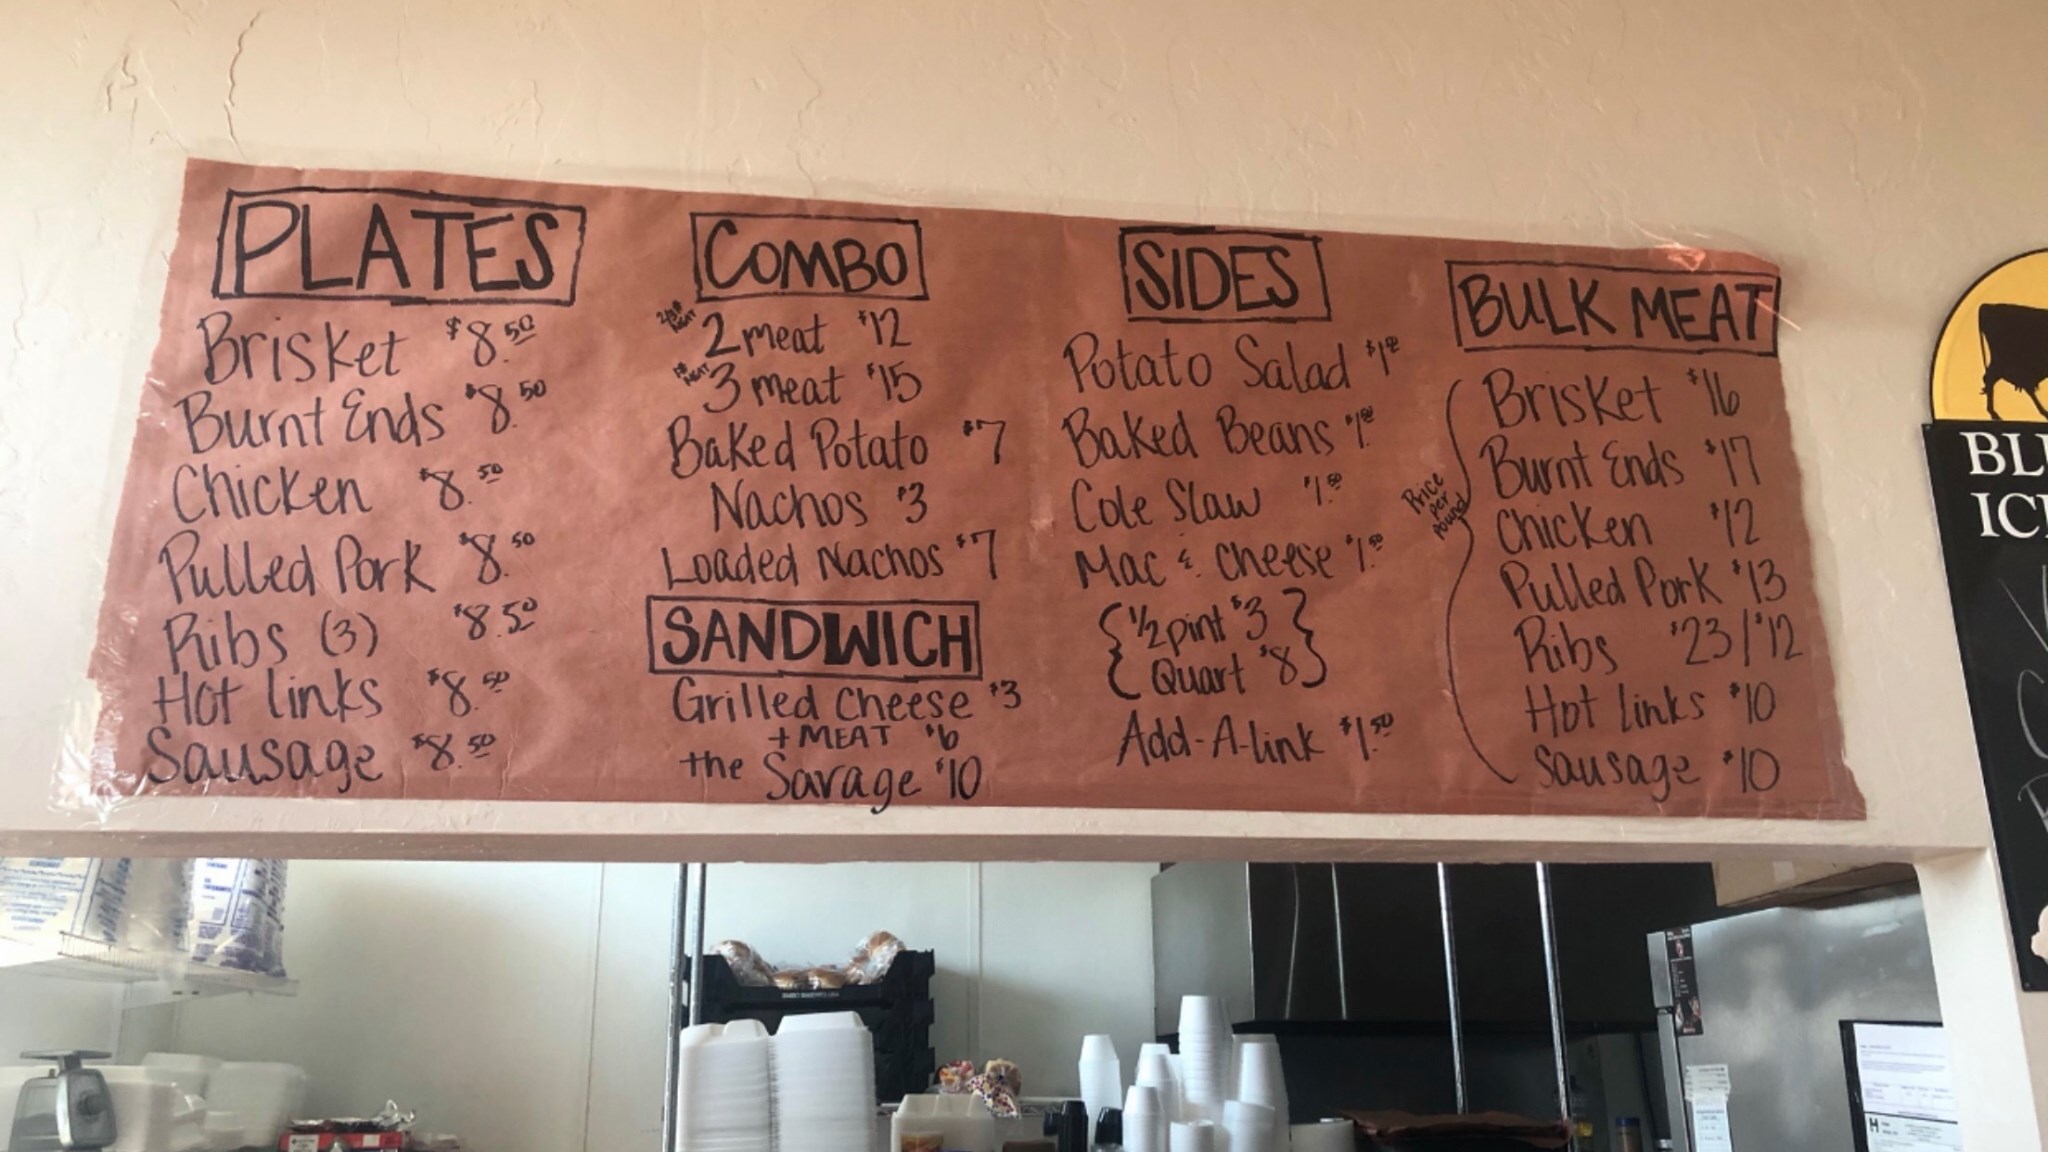 PLATES
Brisket $8.50
Burnt Ends $8.50
Chicken $8.50
Pulled Pork $8.50
Ribs (3) $8.50
Hot Links $8.50
Sausage $8.50
COMBO
MEAT
2 meat $12
MEAT
3 meat $15
Baked Potato $7
Nachos $3
Loaded Nachos $7
SANDWICH
Grilled Cheese $3
+ MEAT $6
the Savage $10
SIDES
Potato Salad
Baked Beans
Cole Slaw $1.50
Mac & Cheese $1.50
{ 1/2 pint $3 }
Quart $8
Add-A-Link $1.50
BULK MEAT
Price
per
pound
Brisket $16
Burnt Ends $17
Chicken $12
Pulled Pork $13
Ribs $23/$12
Hot Links $10
Sausage $10
BL
IC